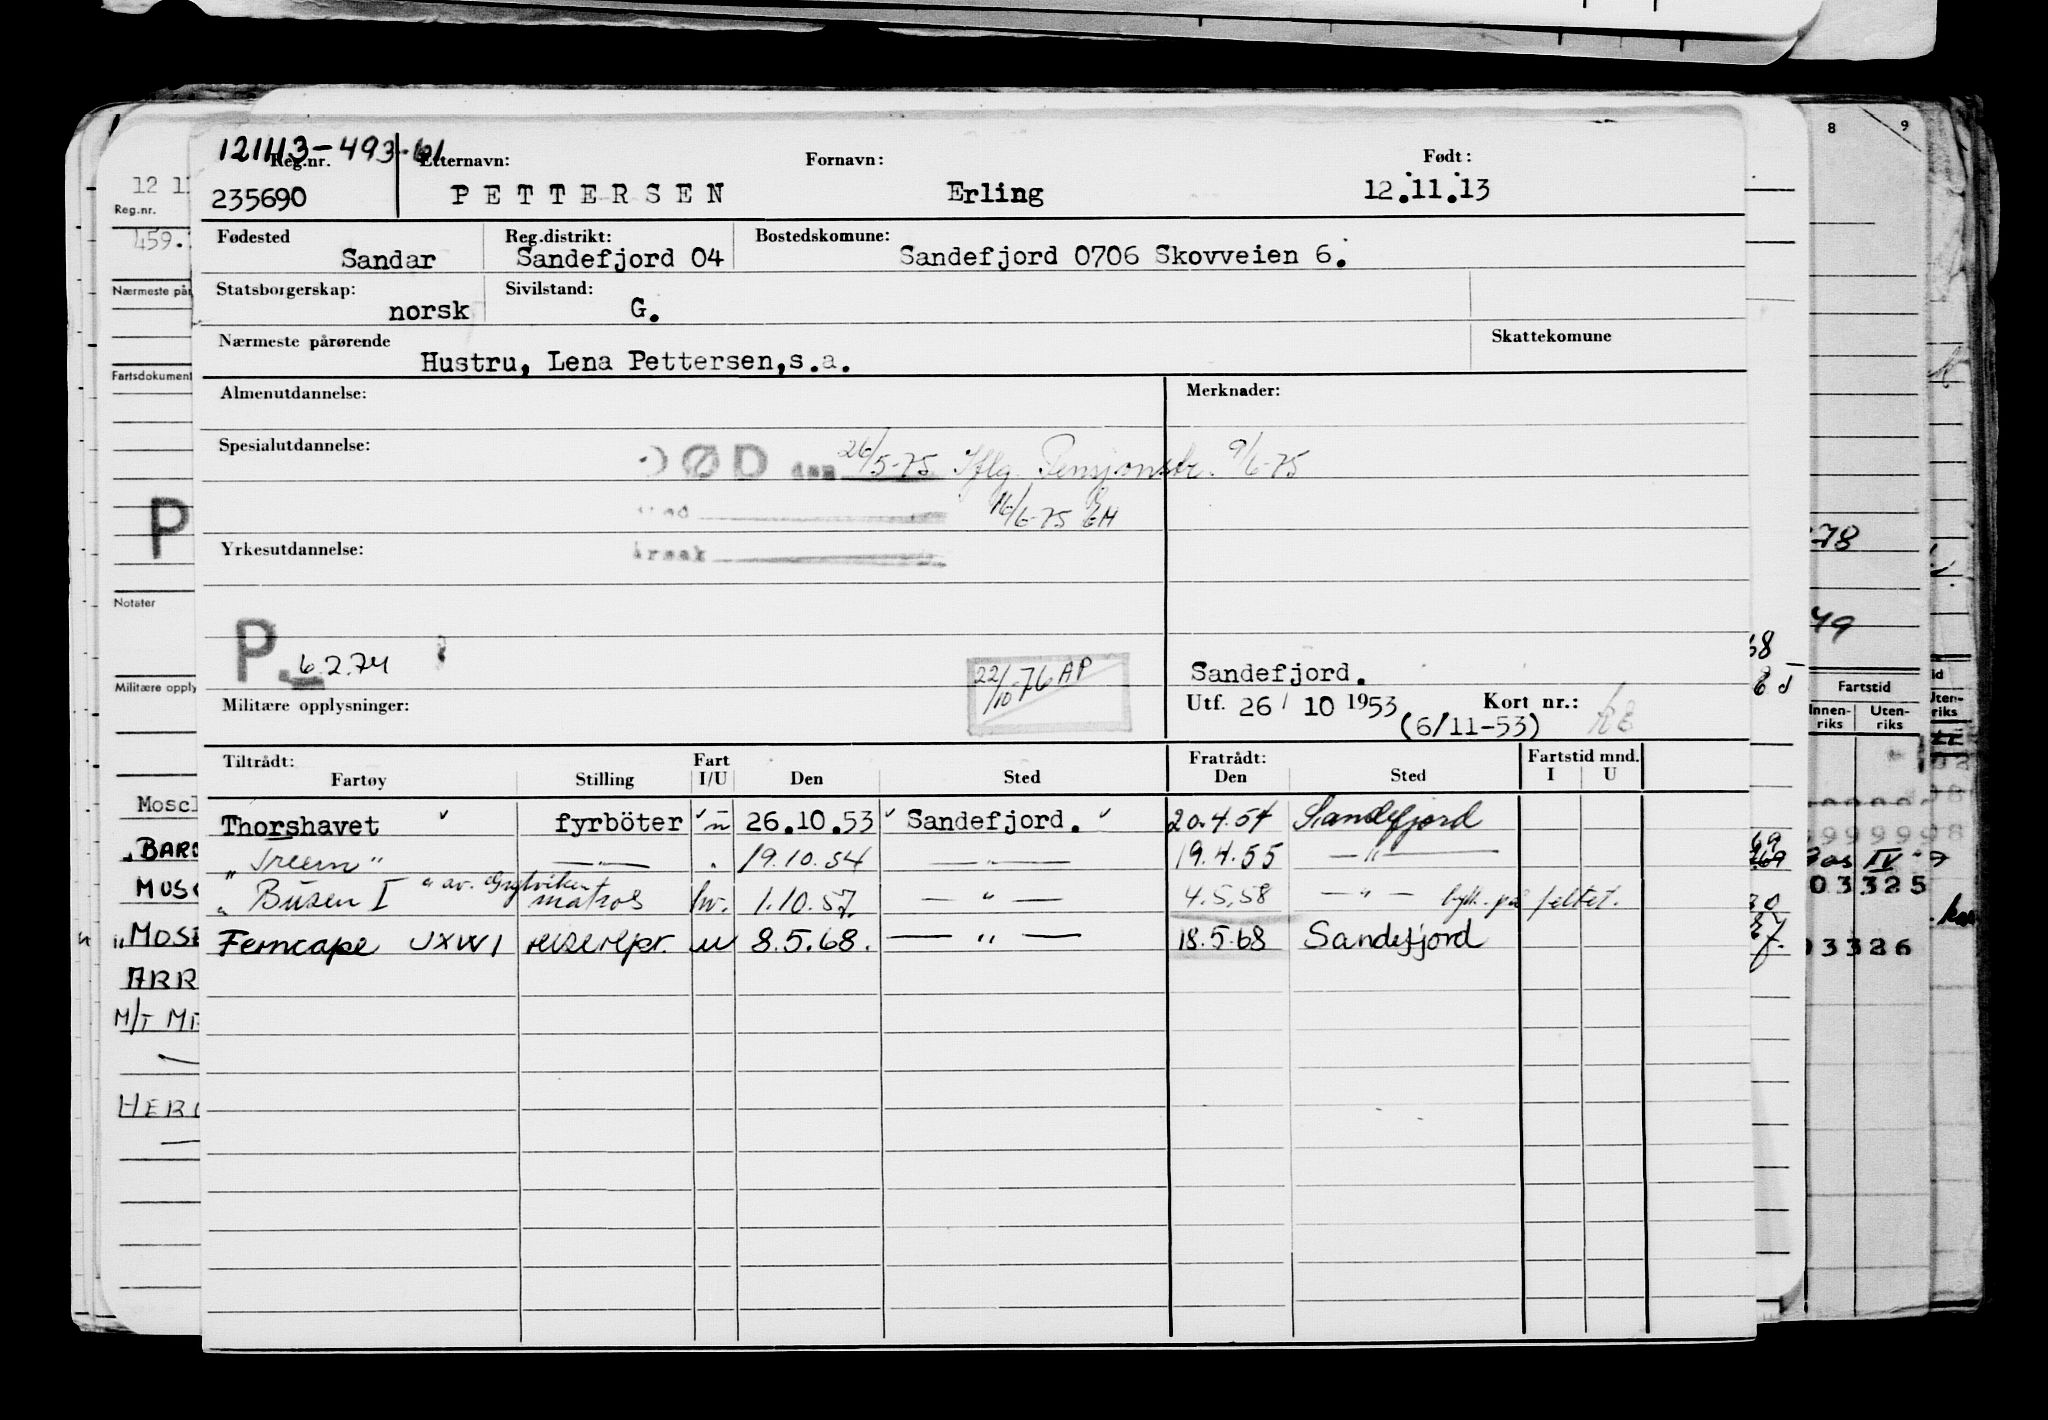 121113-493-61
Reg.nr. Etternavn: Fornavn: Født:
235690 PETTERSEN Erling 12.11.13
Fødested Reg.distrikt: Bostedskomune:
Sandar Sandefjord 04 Sandefjord 0706 Skovveien 6.
Statsborgerskap: Sivilstand:
norsk G.
Nærmeste pårørende Skattekomune
Hustru, Lena Pettersen,s.a.
Almenutdannelse: Merknader:
Spesialutdannelse: DØD den 26/5-75 Iflg. Pensjonstr. 9/6-75
16/6-75 EH
Yrkesutdannelse: årsak
P. 6.2.74
22/10-76 AP
Sandefjord.
Militære opplysninger: Utf. 26/10 1953 Kort nr.:
(6/11-53)
Tiltrådt: Fart Fratrådt: Fartstid mnd.
Fartøy Stilling I/U Den Sted Den Sted I U
Thorshavet fyrböter u 26.10.53 Sandefjord. 20.4.54 Sandefjord
" Treern " —"— " 19.10.54 —"— 19.4.55 —"—
" Busen I " av. Grytviken matros hv. 1.10.57. —"— 4.5.58 —"— på feltet.
Ferncape JXWI reiserepr. u 8.5.68. —"— 18.5.68 Sandefjord
12 1
Reg.nr.
459.
Nærmeste på
Fartsdokument
P
Notater
Militære opply
Mosc
"BARO
MOSC
"MOSE
ARR
M/T ME
HERO
8 9
78
49
68
Fartstid
Innen-riks Uten-riks
69
03325
03326